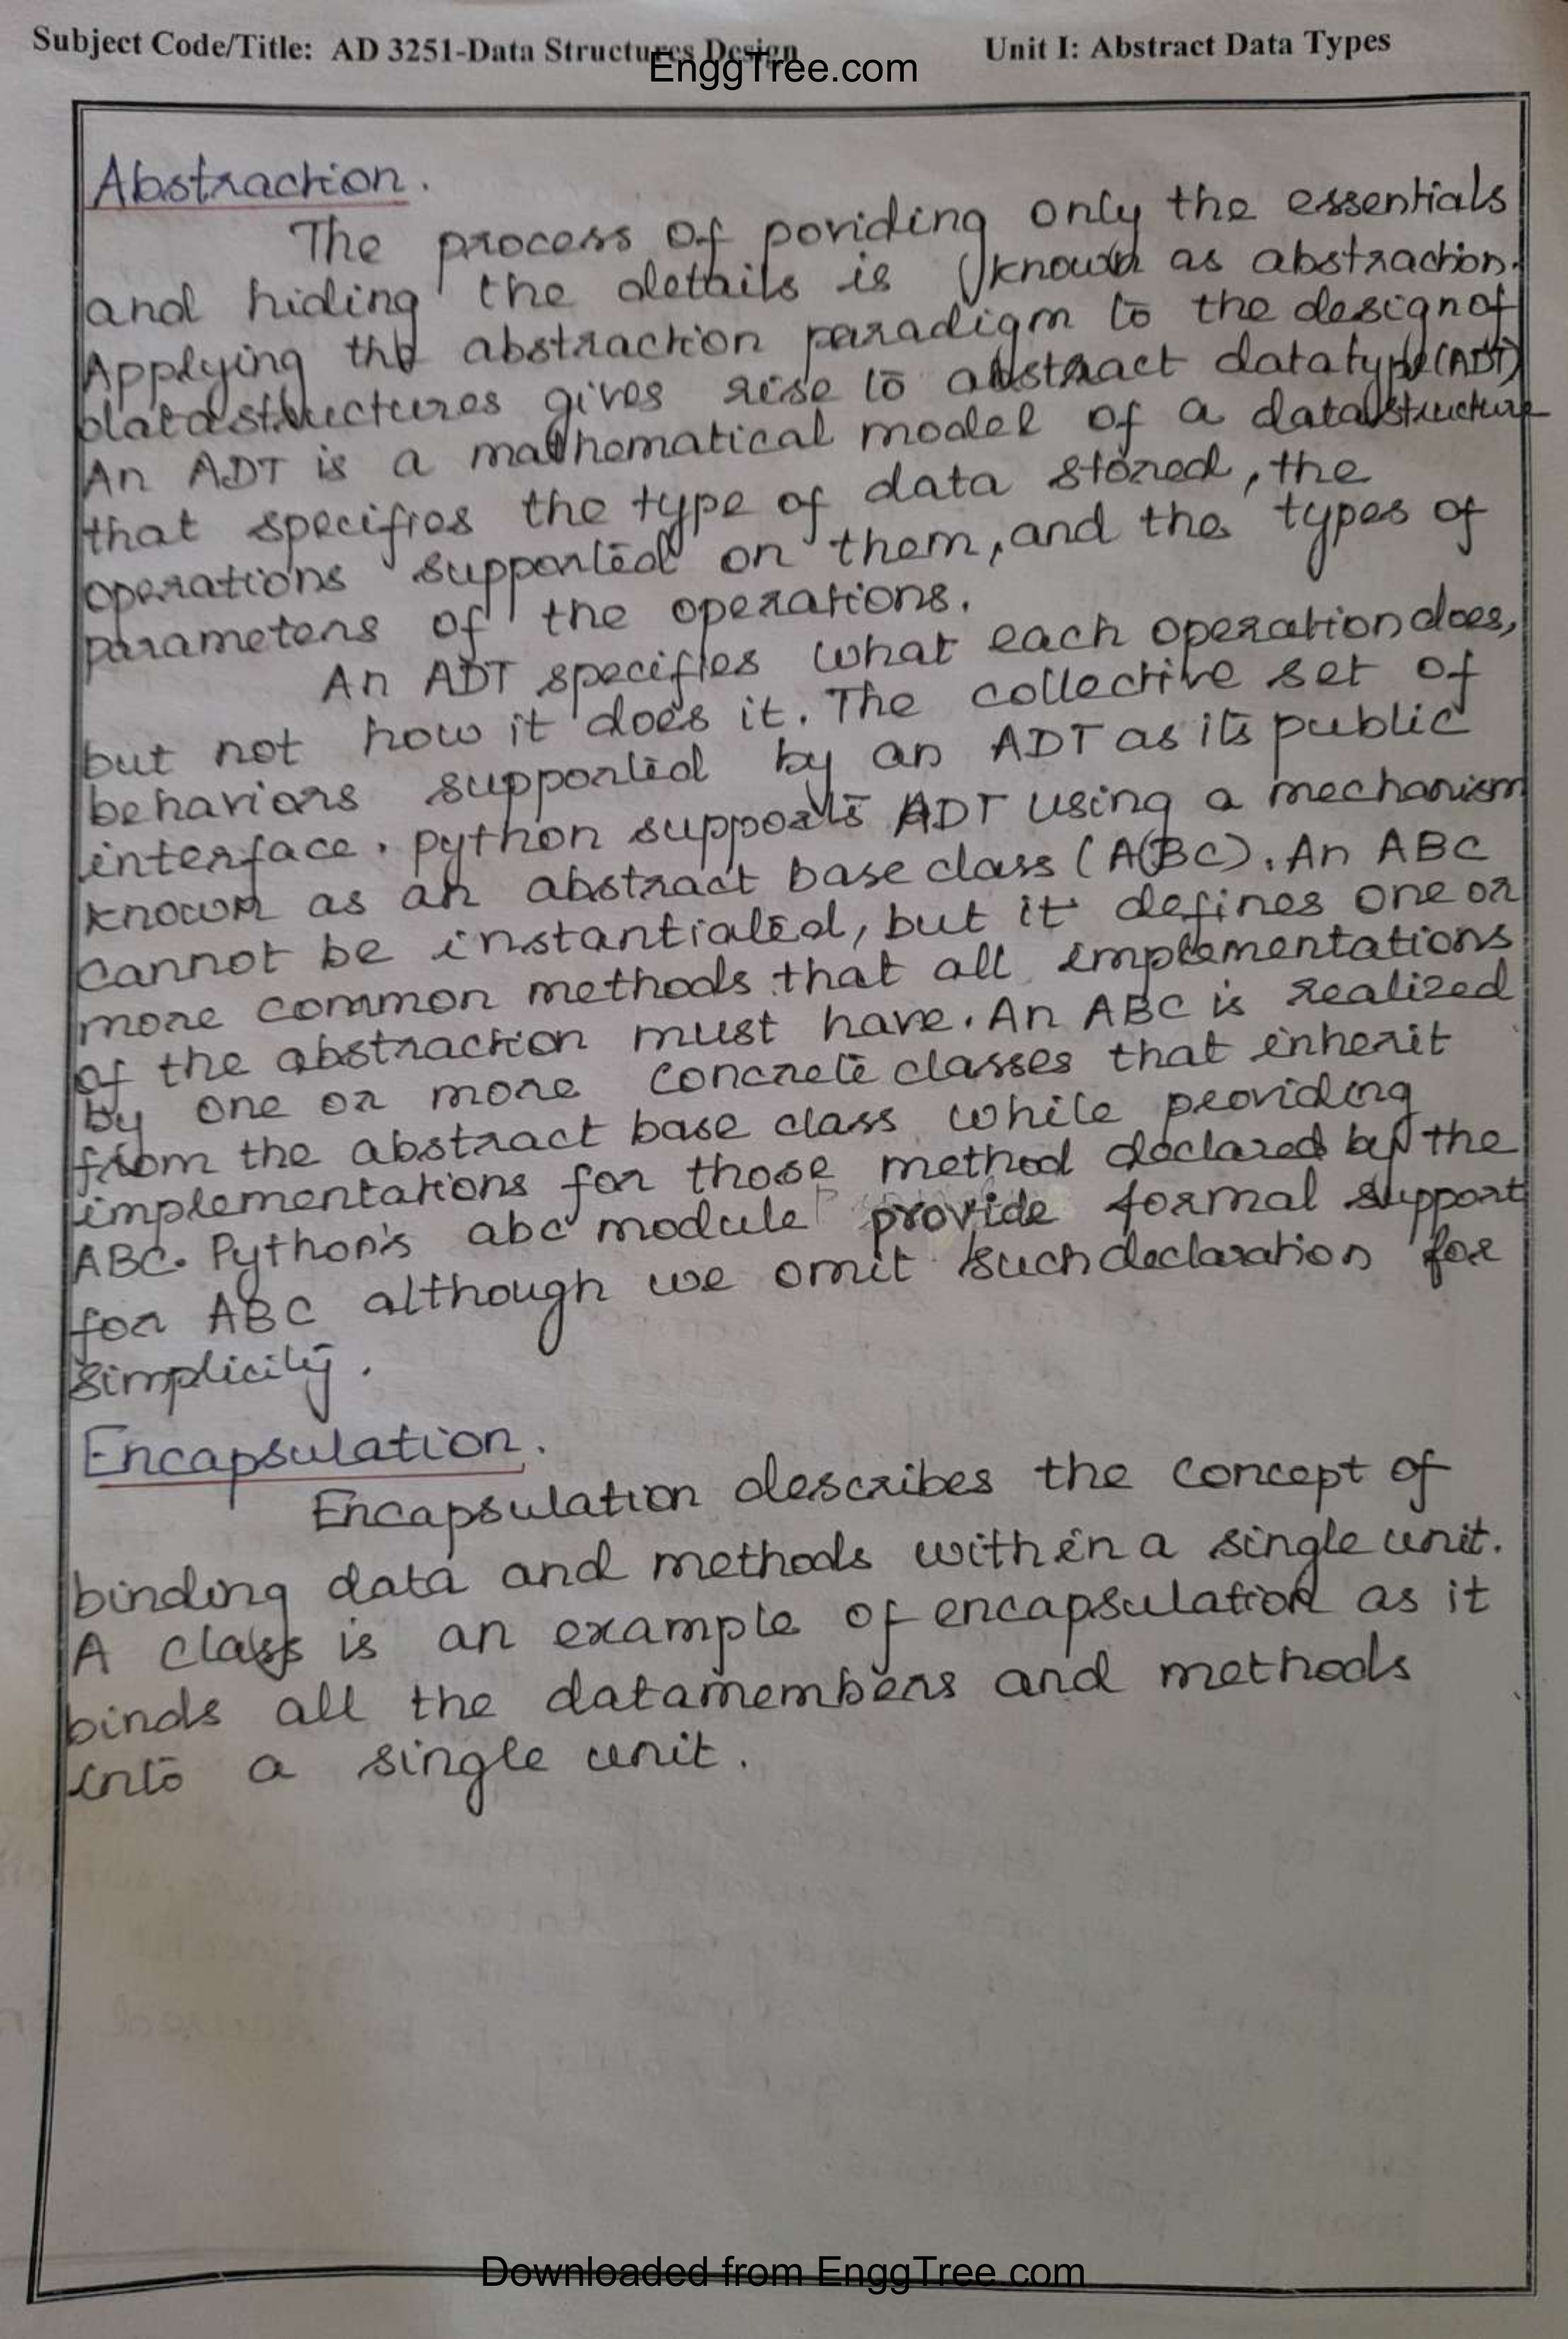 Subject Code/Title: AD 3251-Data Structures Design Unit I: Abstract Data Types
EnggTree.com
Abstraction.
The process of poviding only the essentials
and hiding the details is known as abstraction.
Applying the abstraction paradigm to the design of
datastructures gives rise to abstract datatype(ADT)
An ADT is a mathematical model of a datastructure
that specifies the type of data stored, the
operations supported on them, and the types of
parameters of the operations.
An ADT specifies what each operation does,
but not how it does it. The collective set of
behaviors supported by an ADT as its public
interface. python supports ADT using a mechanism
known as an abstract base class (ABC). An ABC
cannot be instantiated, but it defines one or
more common methods that all implementations
of the abstraction must have. An ABC is realized
by one or more concrete classes that inherit
from the abstract base class while providing
implementations for those method declared by the
ABC. Python's abc module provide formal support
for ABC although we omit such declaration for
simplicity.
Encapsulation.
Encapsulation describes the concept of
binding data and methods within a single unit.
A class is an example of encapsulation as it
binds all the datamembers and methods
into a single unit.
Downloaded from EnggTree.com